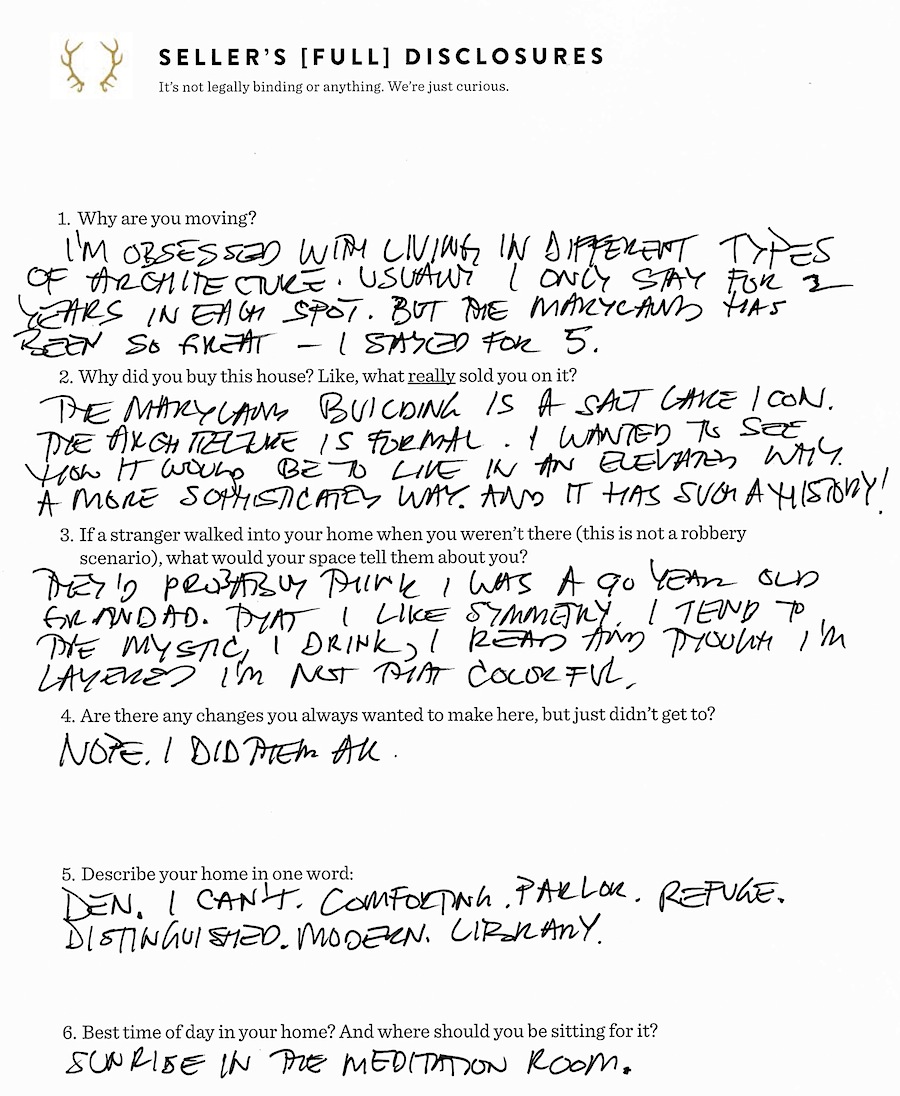 SELLER'S [FULL] DISCLOSURES
It's not legally binding or anything. We're just curious.
1. Why are you moving?
I'M OBSESSED WITH LIVING IN DIFFERENT TYPES
OF ARCHITECTURE. USUALLY I ONLY STAY FOR 2
YEARS IN EACH SPOT. BUT THE MARYLAND HAS
BEEN SO GREAT — I STAYED FOR 5.
2. Why did you buy this house? Like, what really sold you on it?
THE MARYLAND BUILDING IS A SALT LAKE ICON.
THE ARCHITECTURE IS FORMAL. I WANTED TO SEE
HOW IT WOULD BE TO LIVE IN AN ELEVATED WAY.
A MORE SOPHISTICATED WAY. AND IT HAS SUCH A HISTORY!
3. If a stranger walked into your home when you weren't there (this is not a robbery
scenario), what would your space tell them about you?
THEY'D PROBABLY THINK I WAS A 90 YEAR OLD
GRANDAD. THAT I LIKE SYMMETRY. I TEND TO
THE MYSTIC, I DRINK, I READ AND THOUGH I'M
LAYERED I'M NOT THAT COLORFUL.
4. Are there any changes you always wanted to make here, but just didn't get to?
NOPE. I DID THEM ALL.
5. Describe your home in one word:
DEN. I CAN'T. COMFORTING. PARLOR. REFUGE.
DISTINGUISHED. MODERN. LIBRARY.
6. Best time of day in your home? And where should you be sitting for it?
SUNRISE IN THE MEDITATION ROOM.